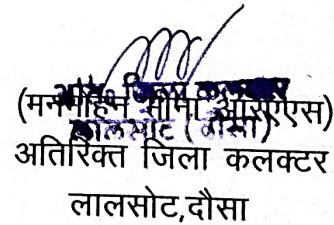 (मनमोहन मीना आरएएस)
अतिरिक्त जिला कलक्टर
लालसोट,दौसा